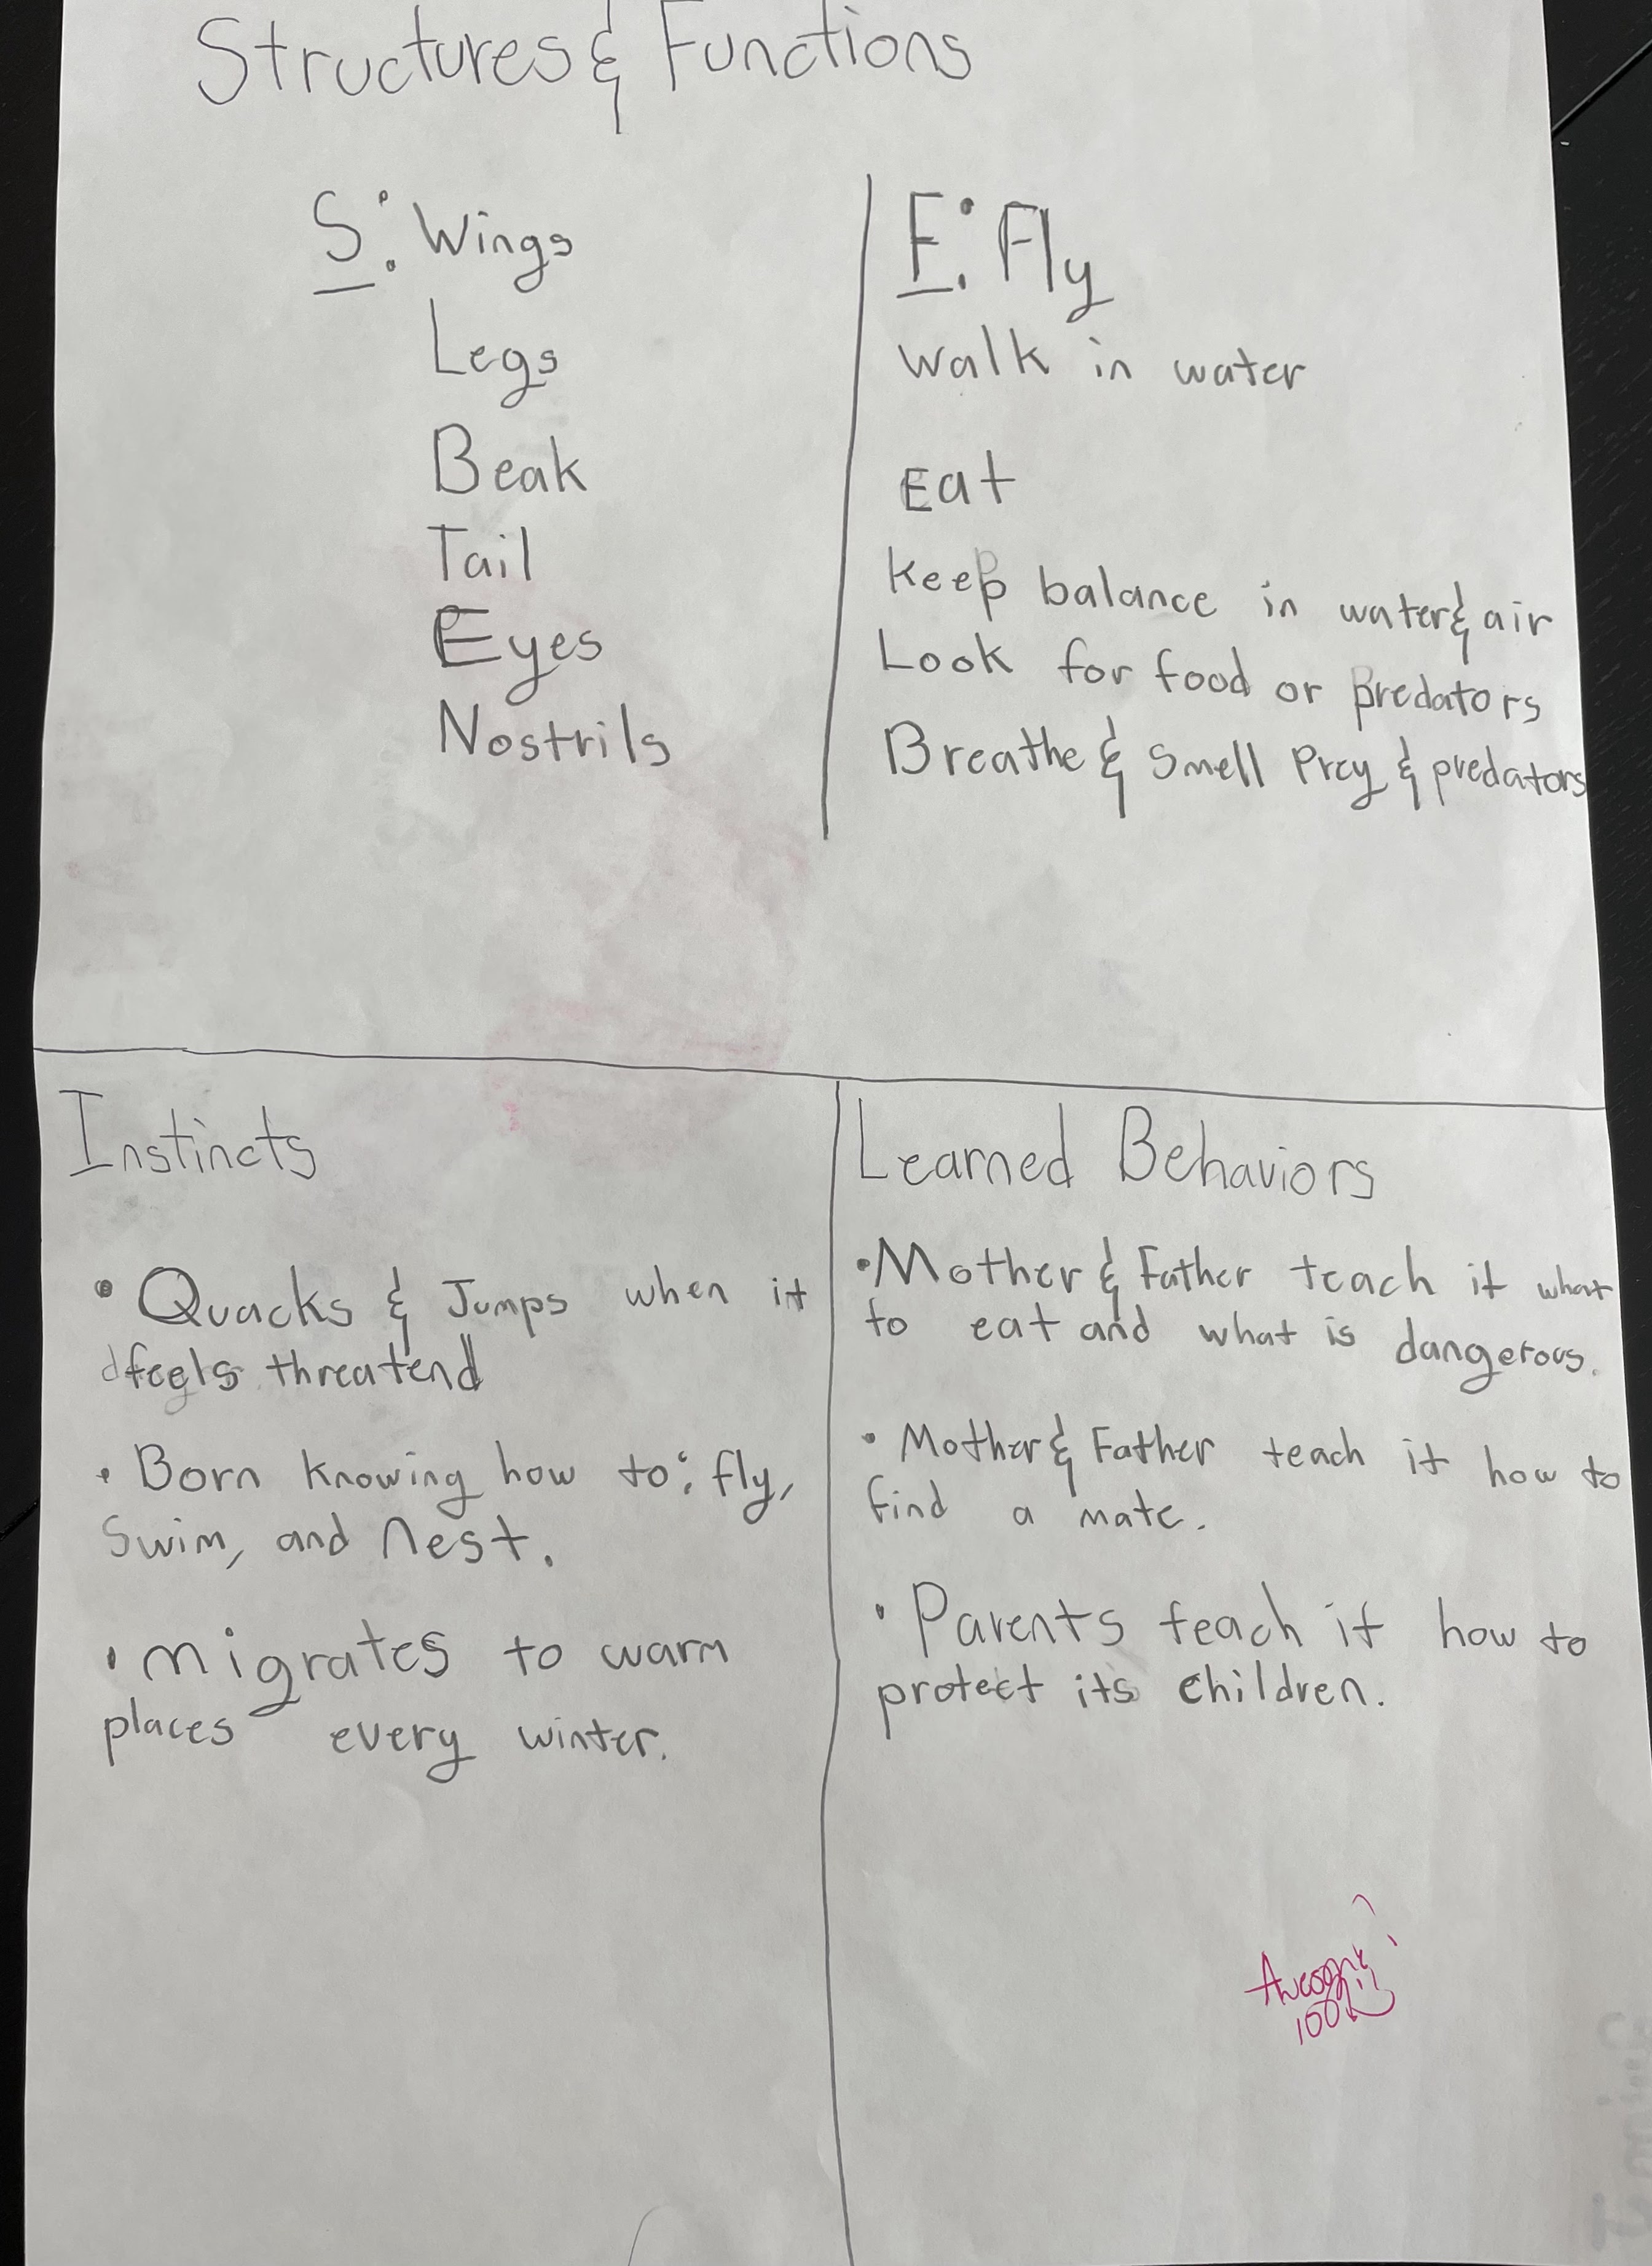 Structures & Functions
S: Wings
Legs
Beak
Tail
Eyes
Nostrils
F: Fly
Walk in water
Eat
Keep balance in water & air
Look for food or predators
Breathe & Smell Prey & predators
Instincts
• Quacks & Jumps when it
feels threatend
• Born knowing how to: fly,
Swim, and nest.
• migrates to warm
places every winter.
Learned Behaviors
• Mother & Father teach it what
to eat and what is dangerous.
• Mother & Father teach it how to
find a mate.
• Parents teach it how to
protect its children.
100